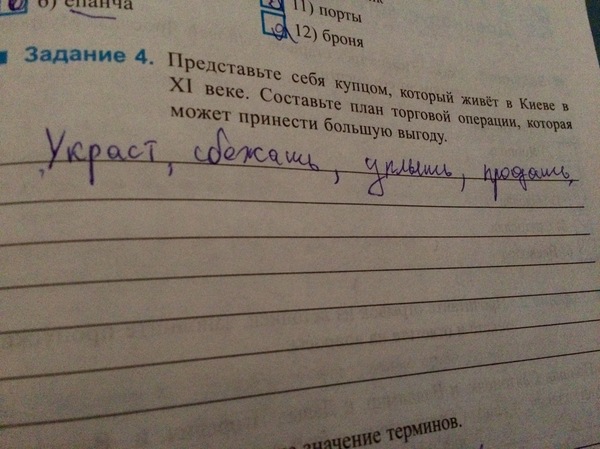 б) епанча
11) порты
12) броня
Задание 4. Представьте себя купцом, который живёт в Киеве в
XI веке. Составьте план торговой операции, которая
может принести большую выгоду.
Украст, сбежать, уплыть, продать,
значение терминов.